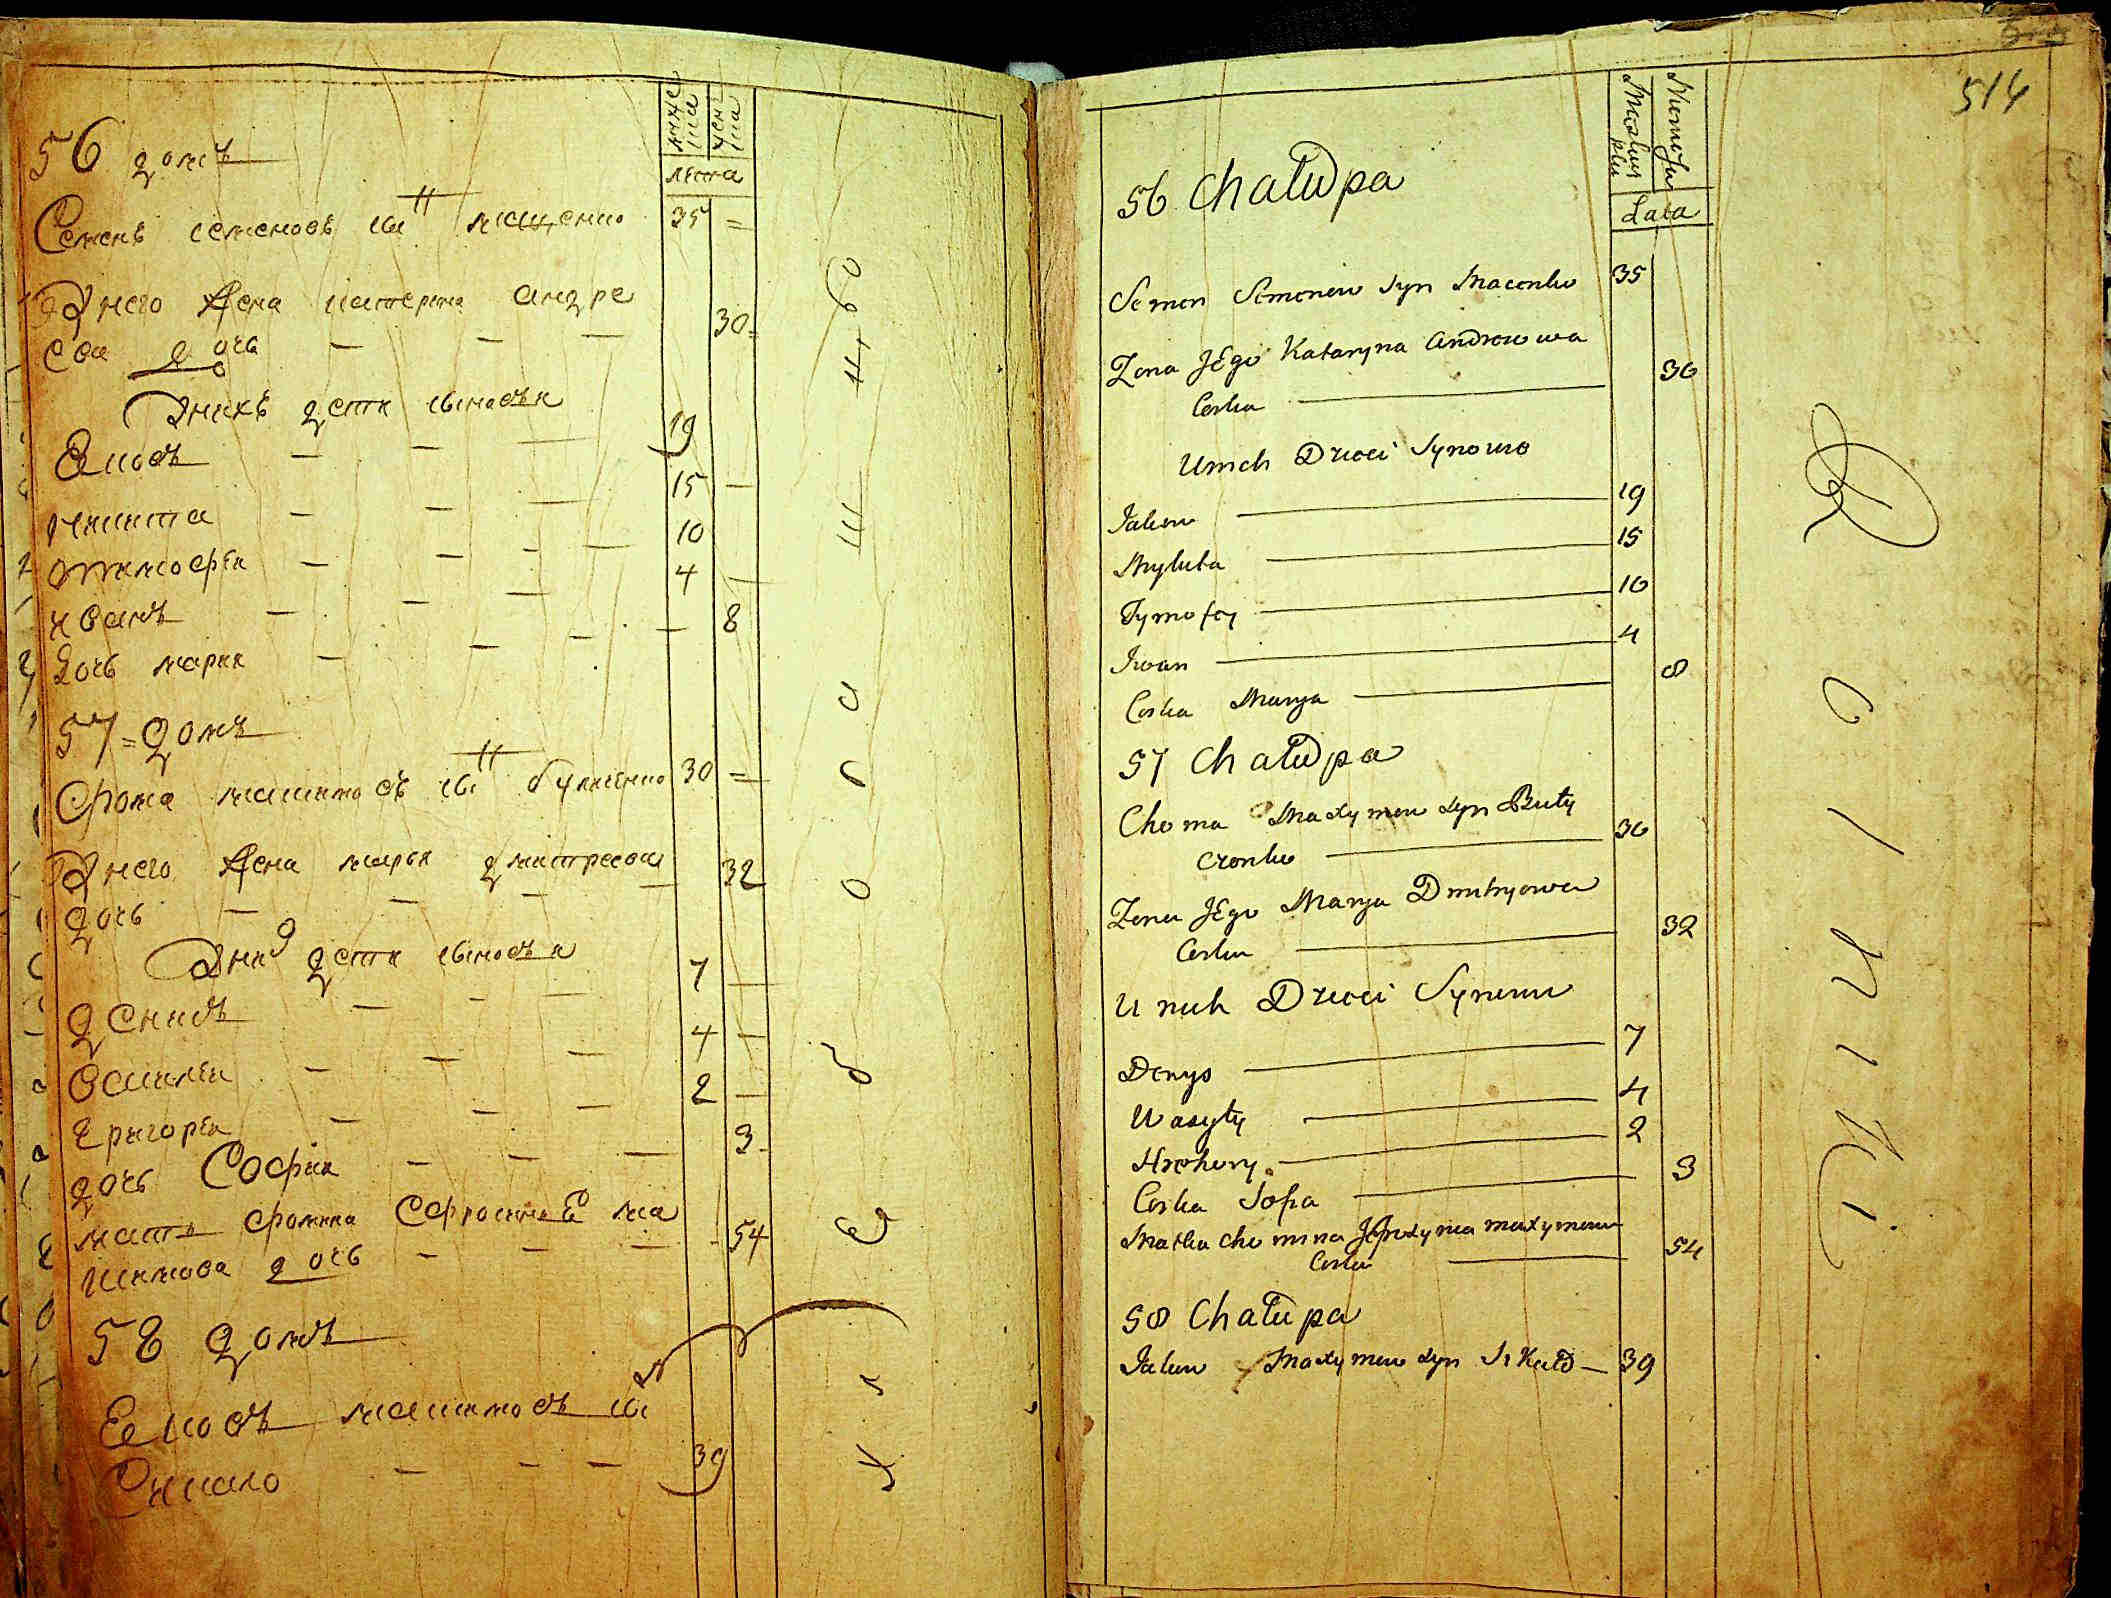 56 домъ
лета
Семенъ семеновъ снъ мащенко 35 =
У него жена катерина андре
ева дочь — — — 30 =
У нихъ дети сыновья
Яковъ — — — 19
микита — — — 15 —
тимофеи — — — 10
иванъ — — — 4 —
Дочь мария — — — 8
57 = домъ
Фома максимовъ снъ 30 =
У него жена мария дмитреева
дочь — — — 32
У них дети сыновья
денисъ — — — 7 —
василеи — — — 4 —
григореи — — — 2 —
дочь София — — — 3
мать фомина Ефросиния ма
ксимова дочь — — — 54
58 домъ
Яковъ максимовъ снъ
Сикало — — — 39
Хлеборобо
514
56 Chałupa
Lata
Semen Semenow Syn Macenko 35
Zona JEgo Kataryna Androwowa
Corka 30
U nich Dzieci Synowo
Jakow 19
Mykita 15
Tymofey 10
Iwan 4
Corka Marya 8
57 Chałupa
Choma Maxymow syn Buły
czenko 30
Zona JEgo Marya Dmitryowa
Corka 32
U nich Dzieci Synowo
Denys 7
Wasyły 4
Hrehory 2
Corka Sofia 3
Matka chomina Jefrozynia maxymowa
Corka 54
58 Chałupa
Jakow Maxymow syn Sikało — 39
Rolniki